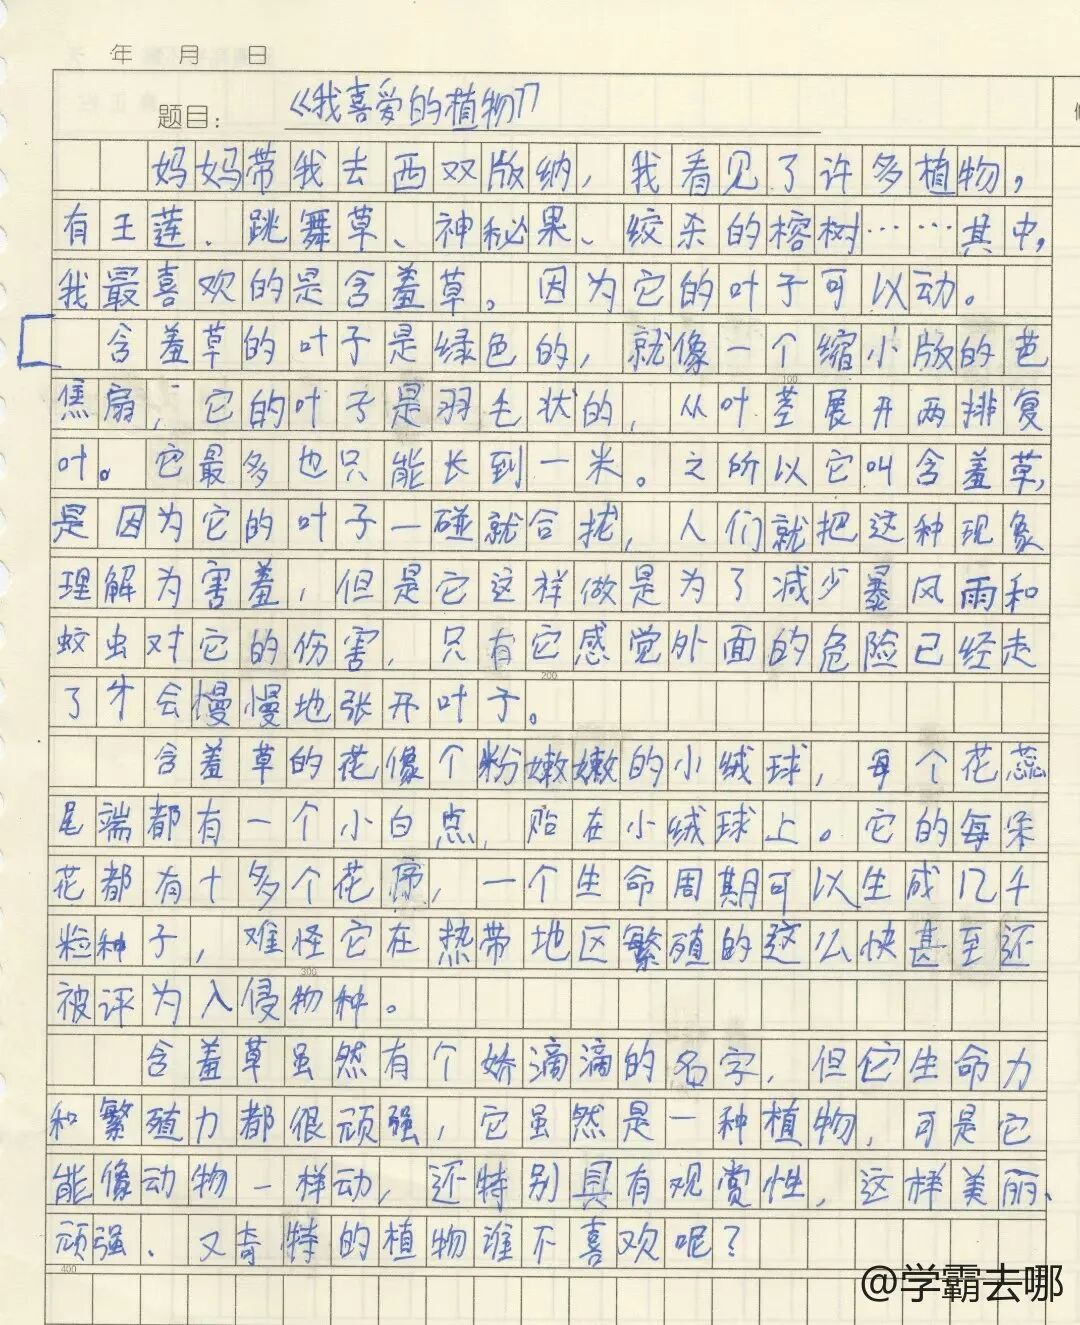 年 月 日
题目：《我喜爱的植物》
妈妈带我去西双版纳，我看见了许多植物，
有王莲、跳舞草、神秘果、绞杀的榕树……其中，
我最喜欢的是含羞草。因为它的叶子可以动。
含羞草的叶子是绿色的，就像一个缩小版的芭
焦扇，它的叶子是羽毛状的，从叶茎展开两排复
叶。它最多也只能长到一米。之所以它叫含羞草，
是因为它的叶子一碰就合拢，人们就把这种现象
理解为害羞，但是它这样做是为了减少暴风雨和
蚊虫对它的伤害，只有它感觉外面的危险已经走
了才会慢慢地张开叶子。
含羞草的花像个粉嫩嫩的小绒球，每个花蕊
尾端都有一个小白点，贴在小绒球上。它的每朵
花都有十多个花序，一个生命周期可以生成几千
粒种子，难怪它在热带地区繁殖的这么快甚至还
被评为入侵物种。
含羞草虽然有个娇滴滴的名字，但它生命力
和繁殖力都很顽强，它虽然是一种植物，可是它
能像动物一样动，还特别具有观赏性，这样美丽、
顽强、又奇特的植物谁不喜欢呢？
100
200
300
400
@学霸去哪